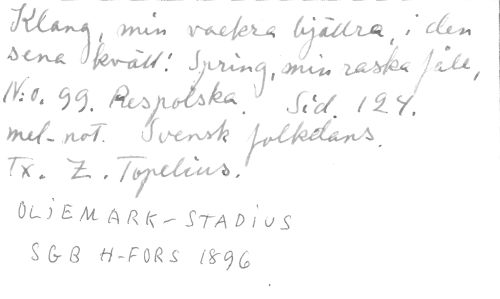 Klang, min vackra bjällra, i den
sena kväll! Spring, min raska fåle,
N:o. 99. Respolska. Sid. 124.
mel-not. Svensk folkdans.
Tx. Z. Topelius.
OLIEMARK-STADIUS
SGB H-FORS 1896